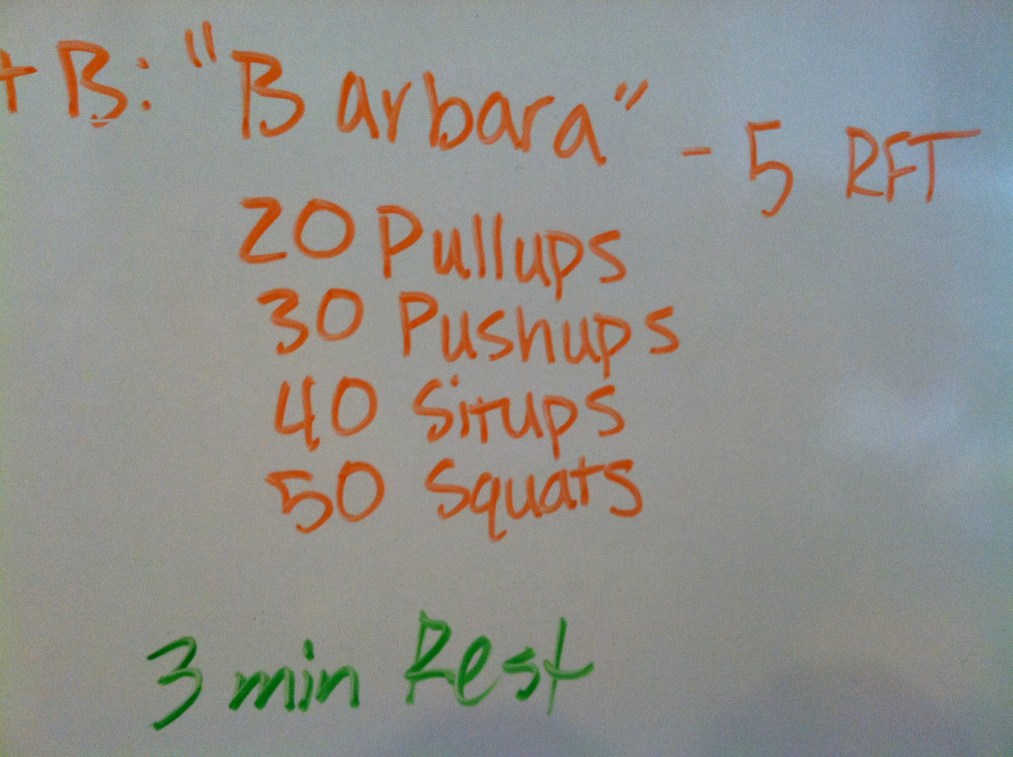 t B: "Barbara" - 5 RFT
20 Pullups
30 Pushups
40 Situps
50 Squats
3 min Rest